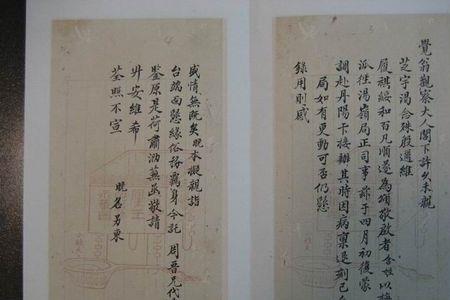 覺翁觀察大人閣下許久未親
芝宇渴念殊殷遥維
履祺綏和百凡順邃為頌敬啟者舍姪以
派往湯嶺局正司事詎于四月初復蒙
調赴丹陽卡接辦其時因病稟退刻已
局如有更動可否仍懇
錄用則感
盛情無既矣晚本擬親詣
台端面懇緣俗務羈身今託周晋兄代
鑒原是荷肅泐蕪函敬請
升安維希
荃照不宣
晚名另柬